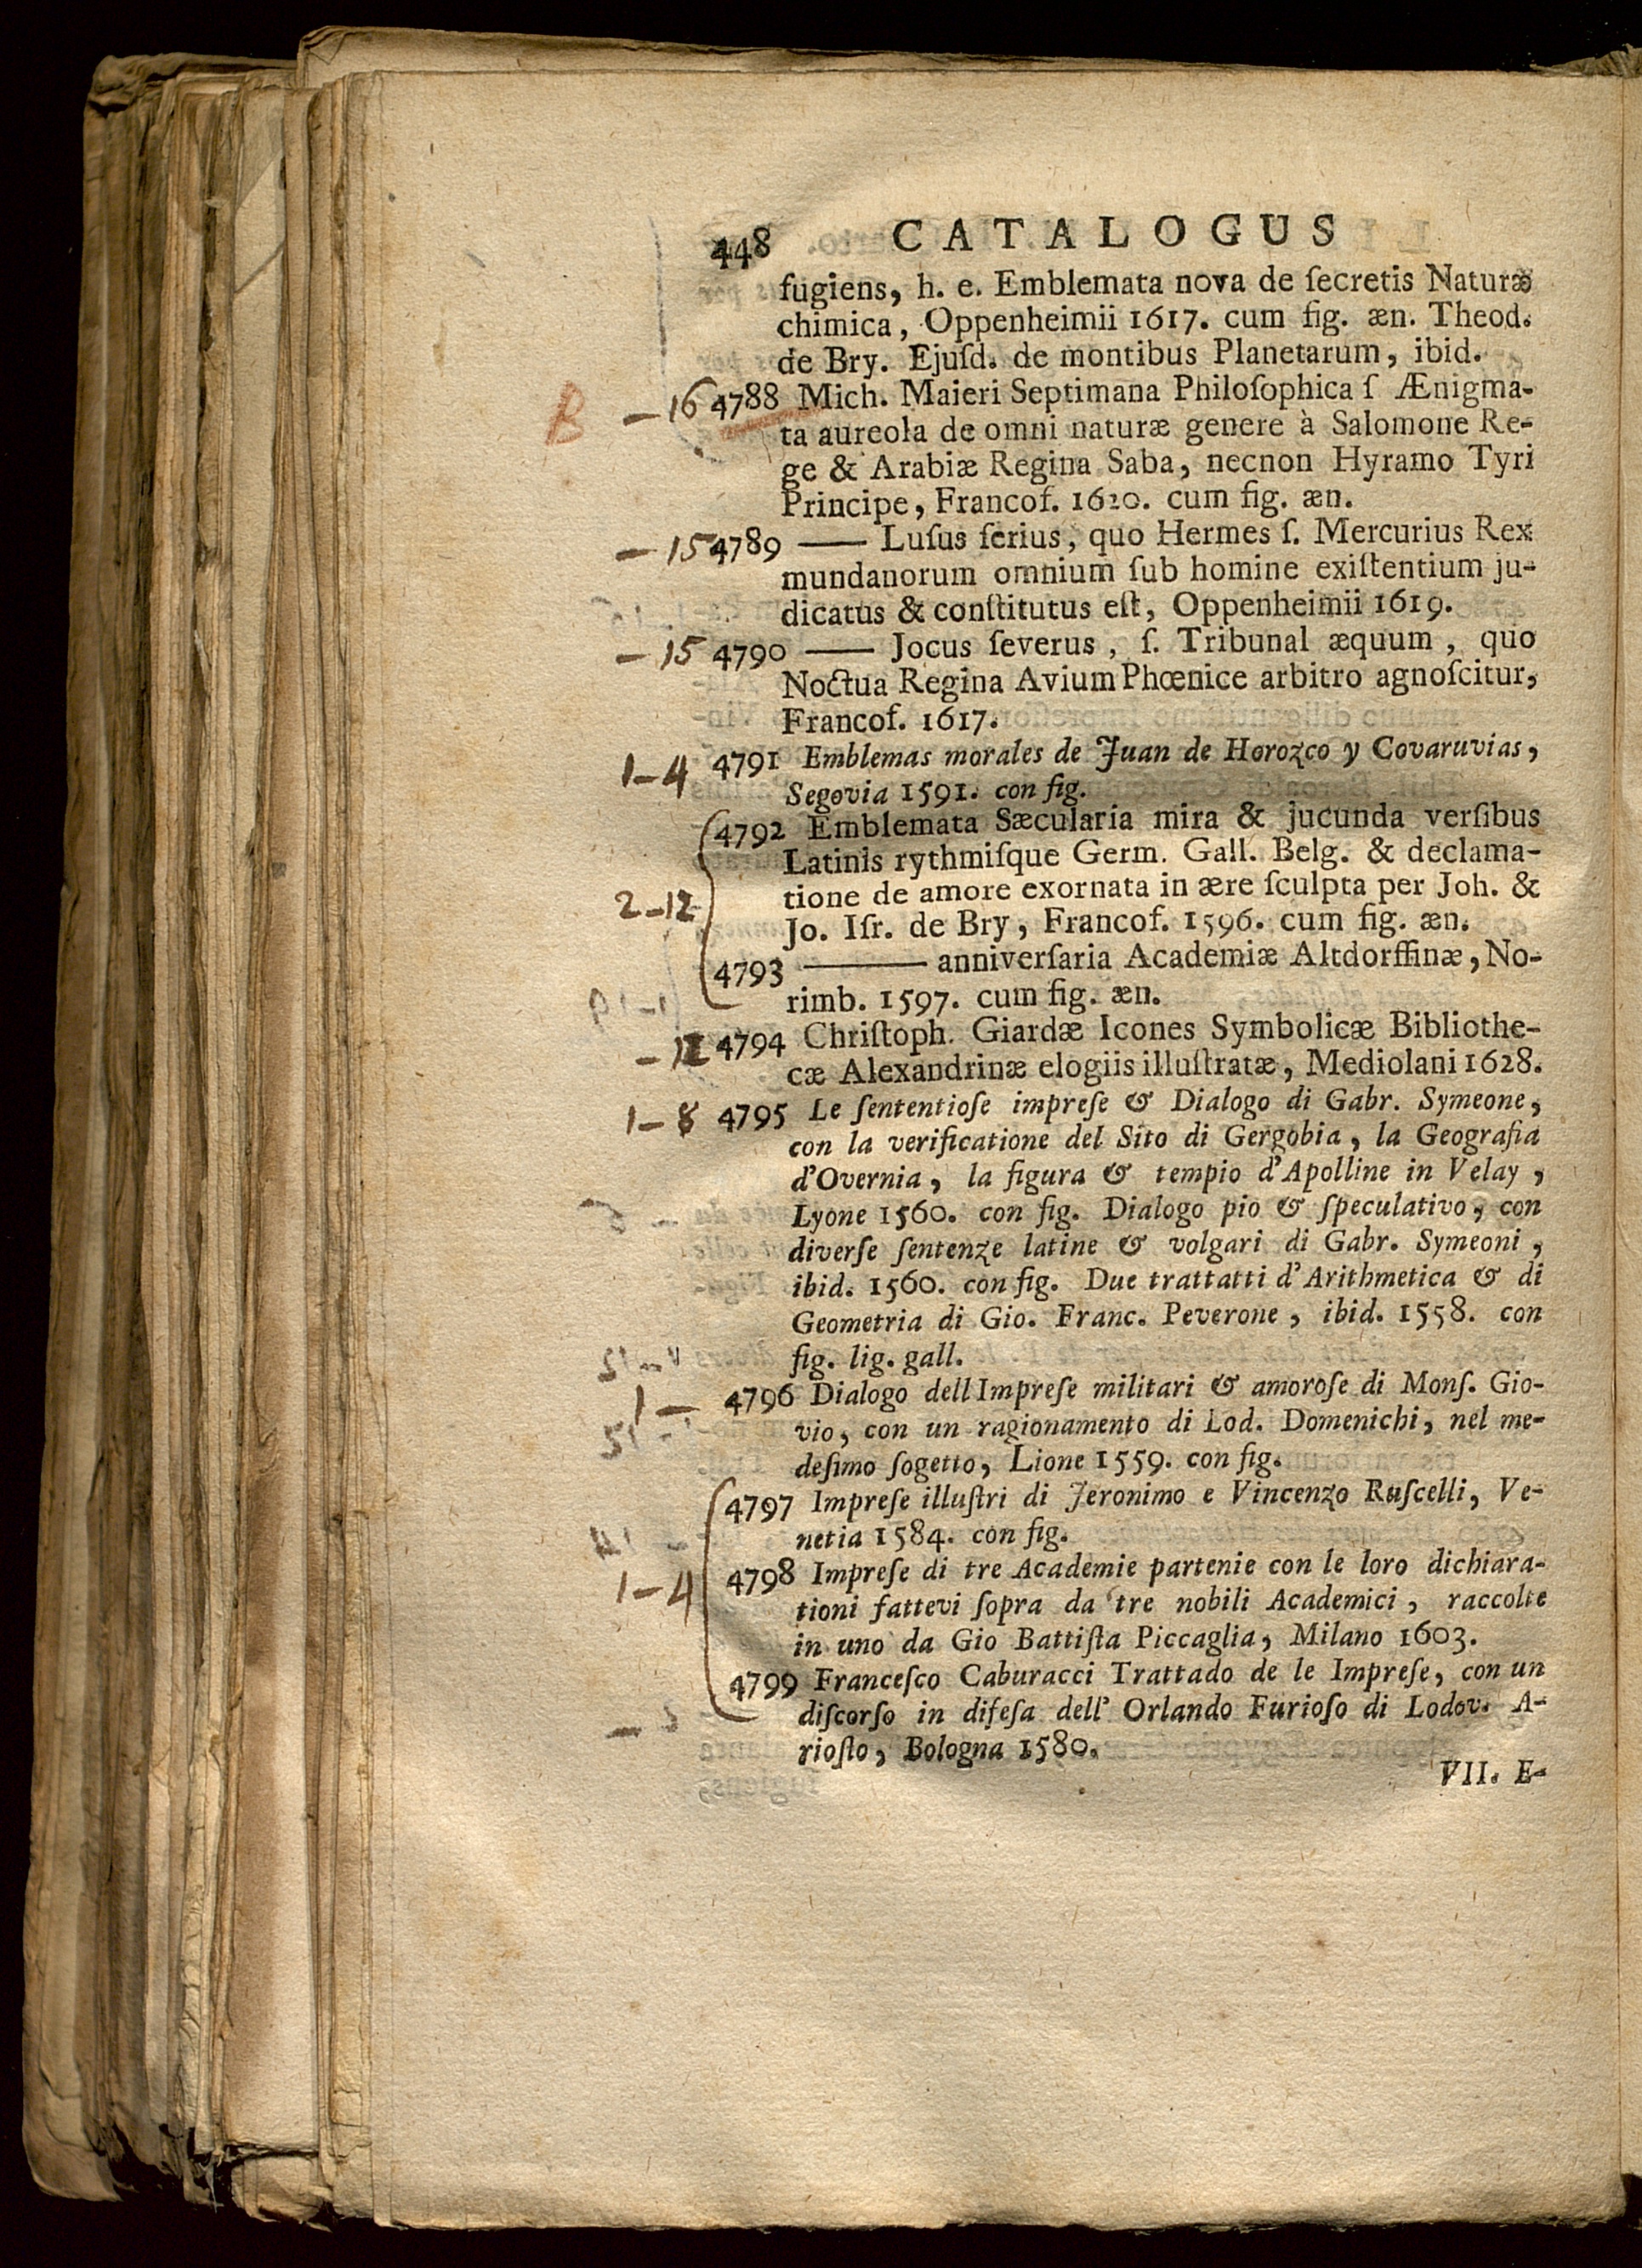 448 CATALOGUS
fugiens, h. e. Emblemata nova de ſecretis Naturæ
chimica, Oppenheimii 1617. cum fig. æn. Theod.
de Bry. Ejuſd. de montibus Planetarum, ibid.
B – 16 4788 Mich. Maieri Septimana Philoſophica ſ Ænigma-
ta aureola de omni naturæ genere à Salomone Re-
ge & Arabiæ Regina Saba, necnon Hyramo Tyri
Principe, Francof. 1620. cum fig. æn.
– 15 4789 —— Luſus ſerius, quo Hermes ſ. Mercurius Rex
mundanorum omnium ſub homine exiſtentium ju-
dicatus & conſtitutus eſt, Oppenheimii 1619.
– 15 4790 —— Jocus ſeverus, ſ. Tribunal æquum, quo
Noctua Regina Avium Phœnice arbitro agnoſcitur,
Francof. 1617.
1–4 4791 Emblemas morales de Juan de Horozco y Covaruvias,
Segovia 1591. con fig.
4792 Emblemata Sæcularia mira & jucunda verſibus
Latinis rythmiſque Germ. Gall. Belg. & declama-
2–12 tione de amore exornata in ære ſculpta per Joh. &
Jo. Iſr. de Bry, Francof. 1596. cum fig. æn.
4793 ——— anniverſaria Academiæ Altdorffinæ, No-
rimb. 1597. cum fig. æn.
4794 Chriſtoph. Giardæ Icones Symbolicæ Bibliothe-
cæ Alexandrinæ elogiis illuſtratæ, Mediolani 1628.
1–8 4795 Le ſententioſe impreſe & Dialogo di Gabr. Symeone,
con la verificatione del Sito di Gergobia, la Geografia
d'Overnia, la figura & tempio d'Apolline in Velay,
Lyone 1560. con fig. Dialogo pio & ſpeculativo, con
diverſe ſentenze latine & volgari di Gabr. Symeoni,
ibid. 1560. con fig. Due trattatti d'Arithmetica & di
Geometria di Gio. Franc. Peverone, ibid. 1558. con
fig. lig. gall.
1 – 4796 Dialogo dell Impreſe militari & amoroſe di Monſ. Gio-
vio, con un ragionamento di Lod. Domenichi, nel me-
deſimo ſogetto, Lione 1559. con fig.
4797 Impreſe illuſtri di Jeronimo e Vincenzo Ruſcelli, Ve-
netia 1584. con fig.
1–4 4798 Impreſe di tre Academie partenie con le loro dichiara-
tioni fattevi ſopra da tre nobili Academici, raccolte
in uno da Gio Battiſta Piccaglia, Milano 1603.
4799 Franceſco Caburacci Trattado de le Impreſe, con un
diſcorſo in difeſa dell' Orlando Furioſo di Lodov. A-
rioſto, Bologna 1580.
VII. E-